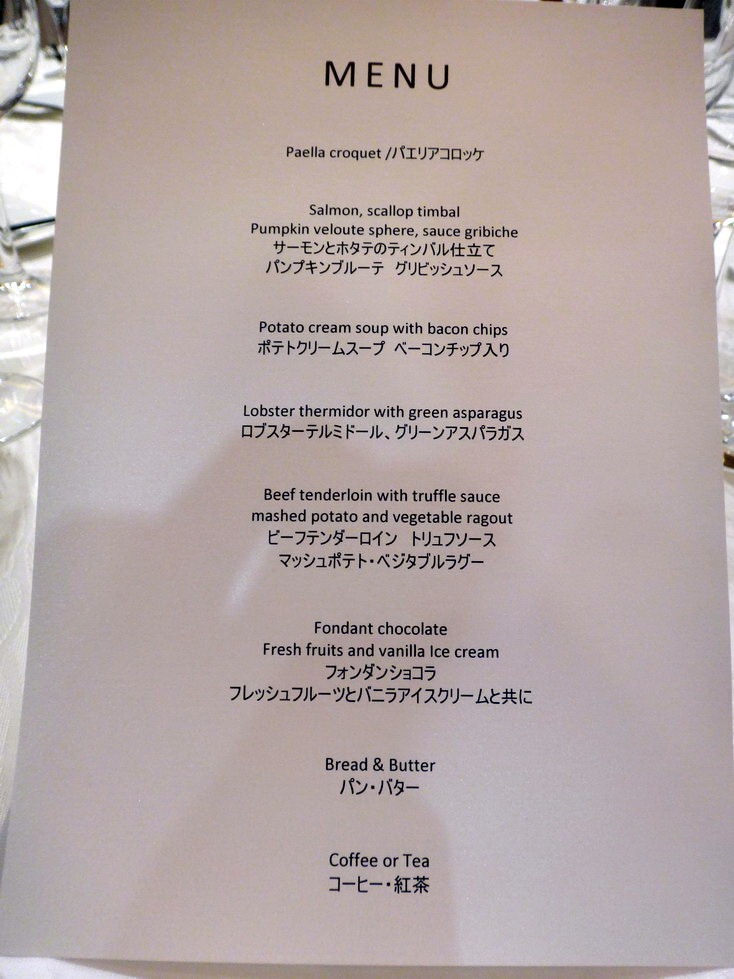 MENU
Paella croquet /パエリアコロッケ
Salmon, scallop timbal
Pumpkin veloute sphere, sauce gribiche
サーモンとホタテのティンバル仕立て
パンプキンブルーテ グリビッシュソース
Potato cream soup with bacon chips
ポテトクリームスープ ベーコンチップ入り
Lobster thermidor with green asparagus
ロブスターテルミドール、グリーンアスパラガス
Beef tenderloin with truffle sauce
mashed potato and vegetable ragout
ビーフテンダーロイン トリュフソース
マッシュポテト・ベジタブルラグー
Fondant chocolate
Fresh fruits and vanilla Ice cream
フォンダンショコラ
フレッシュフルーツとバニラアイスクリームと共に
Bread & Butter
パン・バター
Coffee or Tea
コーヒー・紅茶